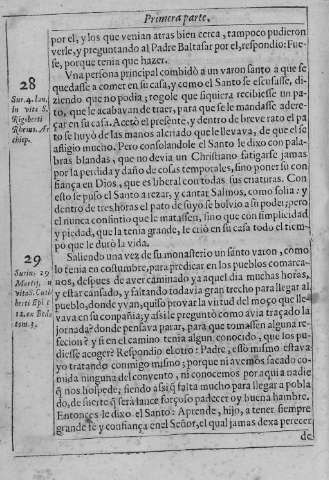 Primera parte.
por el, y los que venian atras bien cerca, tampoco pudieron
verle, y preguntando al Padre Baltasar por el, respondio: Fue-
se, porque tenia que hazer.
28
Vna persona principal combidò a un varon santo a que se
quedasse a comer en su casa, y como el Santo se escusasse, di-
ziendo que no podia; rogole que siquiera recibiesse un pa-
to, que le acabavan de traer, para que se le mandasse adere-
çar en su casa. Acetò el presente, y dentro de breve rato el pa
to se huyò de las manos al criado que le llevava, de que el se
afligio mucho. Pero consolandole el Santo le dixo con pala-
bras blandas, que no devia un Christiano fatigarse jamas
por la perdida y daño de cosas temporales, sino poner su con
fiança en Dios, que es liberal con todas sus criaturas. Con
esto se puso el Santo a rezar, y cantar Salmos, como solia: y
dentro de tres horas el pato de suyo se bolvio a su poder; pero
el nunca consintio que le matassen, sino que con simplicidad
y piedad, que la tenia grande, le criò en su casa todo el tiem-
po que le durò la vida.
Sur. 4. Ian.
in vita S.
Rigoberti
Rhems. Ar
chiep.
29
Saliendo una vez de su monasterio un santo varon, como
lo tenia en costumbre, para predicar en los pueblos comarca-
nos, despues de aver caminado ya aquel dia muchas horas,
y estar cansado, y faltando todavia gran trecho para llegar al
pueblo, donde yvan, quiso provar la virtud del moço que lle-
vava en su compañia; y assi le preguntò como avia traçado la
jornada: donde pensava parar, para que tomassen alguna re-
fecion? y si en el camino tenia algun conocido, que los pu-
diesse acoger? Respondio el otro: Padre, esso mismo estava
yo tratando conmigo mismo; porque ni avemos sacado co-
mida ninguna del convento, ni conocemos por aqui a nadie
q̃ nos hospede; siendo assi q̃ falta mucho para llegar a pobla
do, de suerte q̃ serà lance forçoso padecer oy buena hambre.
Entonces le dixo el Santo: Aprende, hijo, a tener siempre
grande fe y confiança en el Señor, el qual jamas dexa perecer
Surius, 20
Martij, in
vita S. Cuth
berti Epi. c
12. ex Beda
tom. 3.
de